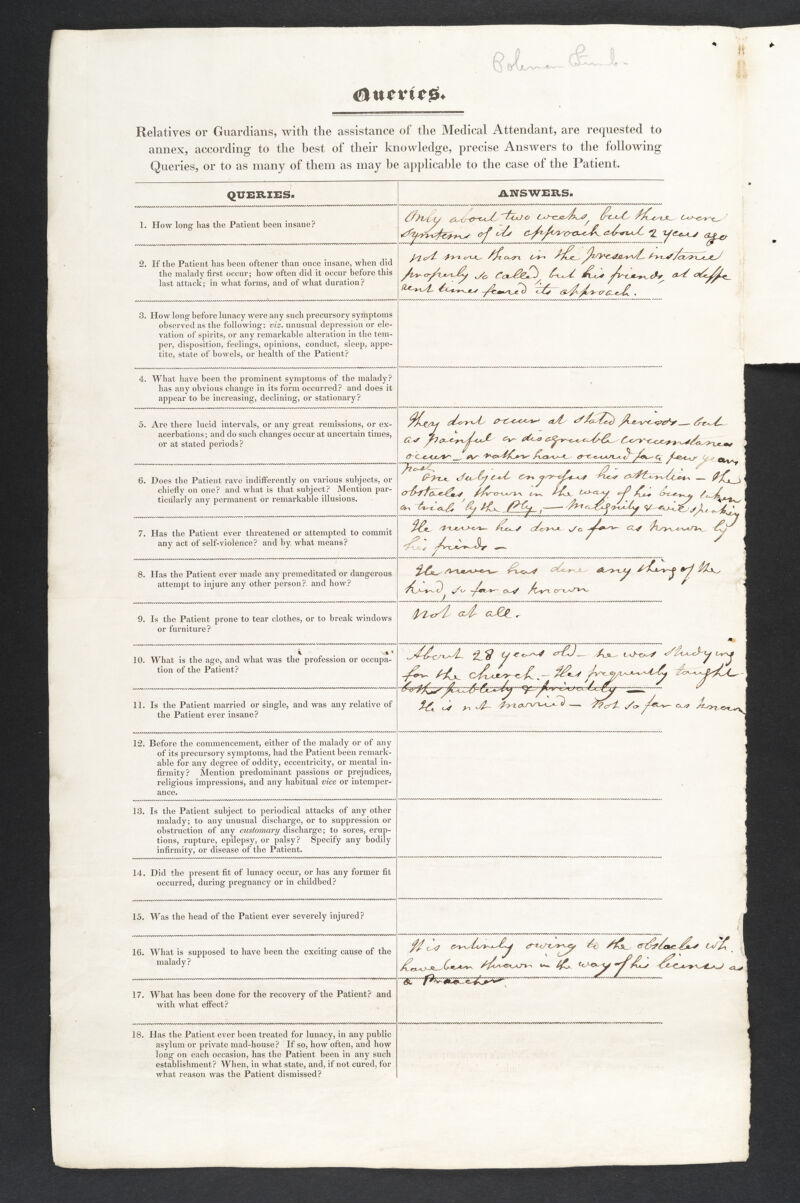 Queries.
Relatives or Guardians, with the assistance of the Medical Attendant, are requested to
annex, according to the best of their knowledge, precise Answers to the following
Queries, or to as many of them as may be applicable to the case of the Patient.
QUERIES.
ANSWERS.
1. How long has the Patient been insane?
Only about two weeks, but there were
Symtems of its approach about 2 years ago
2. If the Patient has been oftener than once insane, when did
the malady first occur; how often did it occur before this
last attack; in what forms, and of what duration?
Not more than in the present instance
properly so called, but his friends, at diffe
rent times feared its approach.
3. How long before lunacy were any such precursory symptoms
observed as the following: viz. unusual depression or ele-
vation of spirits, or any remarkable alteration in the tem-
per, disposition, feelings, opinions, conduct, sleep, appe-
tite, state of bowels, or health of the Patient?
4. What have been the prominent symptoms of the malady?
has any obvious change in its form occurred? and does it
appear to be increasing, declining, or stationary?
5. Are there lucid intervals, or any great remissions, or ex-
acerbations; and do such changes occur at uncertain times,
or at stated periods?
They dont occur at stated periods — but
as painful or disagreeable circumstances
occur — or rather have occurred for a few years
past
6. Does the Patient rave indifferently on various subjects, or
chiefly on one? and what is that subject? Mention par-
ticularly any permanent or remarkable illusions.
One subject engrosses his attention — The
obstacles, thrown in the way of his being taken
on trials by the Pby, — Malignity & evil speaking
7. Has the Patient ever threatened or attempted to commit
any act of self-violence? and by what means?
He never has done so far as known by
his friends —
8. Has the Patient ever made any premeditated or dangerous
attempt to injure any other person? and how?
He never has done any thing of the
kind, so far as known
9. Is the Patient prone to tear clothes, or to break windows
or furniture?
Not at all.
10. What is the age, and what was the profession or occupa-
tion of the Patient?
About 28 years old — he was studying
for the church. — Has frequently taught
both publicly & privately —
11. Is the Patient married or single, and was any relative of
the Patient ever insane?
He is not married — Not so far as known
12. Before the commencement, either of the malady or of any
of its precursory symptoms, had the Patient been remark-
able for any degree of oddity, eccentricity, or mental in-
firmity? Mention predominant passions or prejudices,
religious impressions, and any habitual vice or intemper-
ance.
13. Is the Patient subject to periodical attacks of any other
malady; to any unusual discharge, or to suppression or
obstruction of any customary discharge; to sores, erup-
tions, rupture, epilepsy, or palsy? Specify any bodily
infirmity, or disease of the Patient.
14. Did the present fit of lunacy occur, or has any former fit
occurred, during pregnancy or in childbed?
15. Was the head of the Patient ever severely injured?
16. What is supposed to have been the exciting cause of the
malady?
It is entirely owing to the obstacles wh.
have been thrown in the way of his license as
a Preacher.
17. What has been done for the recovery of the Patient? and
with what effect?
18. Has the Patient ever been treated for lunacy, in any public
asylum or private mad-house? If so, how often, and how
long on each occasion, has the Patient been in any such
establishment? When, in what state, and, if not cured, for
what reason was the Patient dismissed?